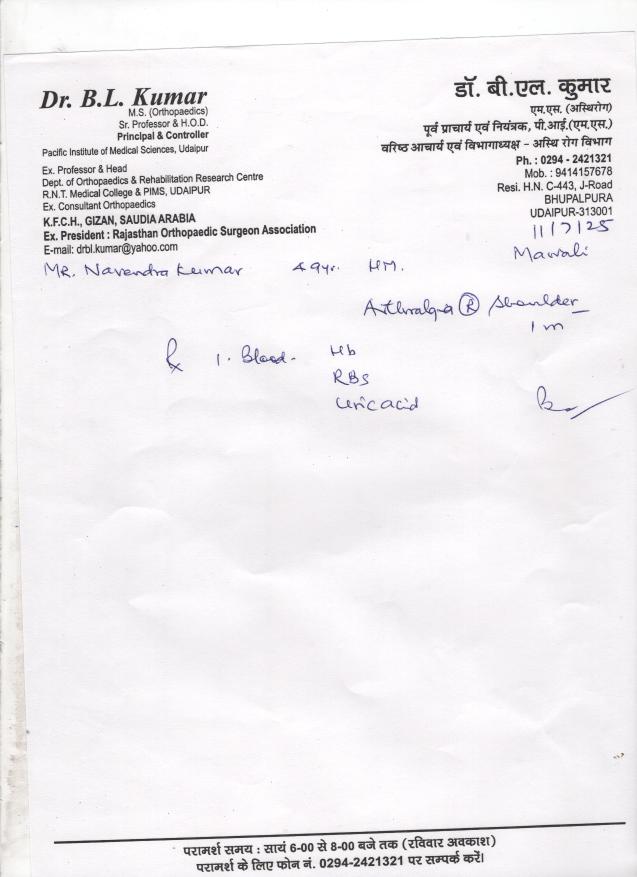 Dr. B.L. Kumar
M.S. (Orthopaedics)
Sr. Professor & H.O.D.
Principal & Controller
Pacific Institute of Medical Sciences, Udaipur
Ex. Professor & Head
Dept. of Orthopaedics & Rehabilitation Research Centre
R.N.T. Medical College & PIMS, UDAIPUR
Ex. Consultant Orthopaedics
K.F.C.H., GIZAN, SAUDIA ARABIA
Ex. President : Rajasthan Orthopaedic Surgeon Association
E-mail: drbl.kumar@yahoo.com
डॉ. बी.एल. कुमार
एम.एस. (अस्थिरोग)
पूर्व प्राचार्य एवं नियंत्रक, पी.आई.(एम.एस.)
वरिष्ठ आचार्य एवं विभागाध्यक्ष - अस्थि रोग विभाग
Ph. : 0294 - 2421321
Mob. : 9414157678
Resi. H.N. C-443, J-Road
BHUPALPURA
UDAIPUR-313001
11/7/25
Mawali
MR. Narendra Kumar 49yr. HM.
Arthralgia Ⓡ Shoulder
1 m
Rx 1. Blood - Hb
RBS
Uric acid
परामर्श समय : सायं 6-00 से 8-00 बजे तक (रविवार अवकाश)
परामर्श के लिए फोन नं. 0294-2421321 पर सम्पर्क करें।